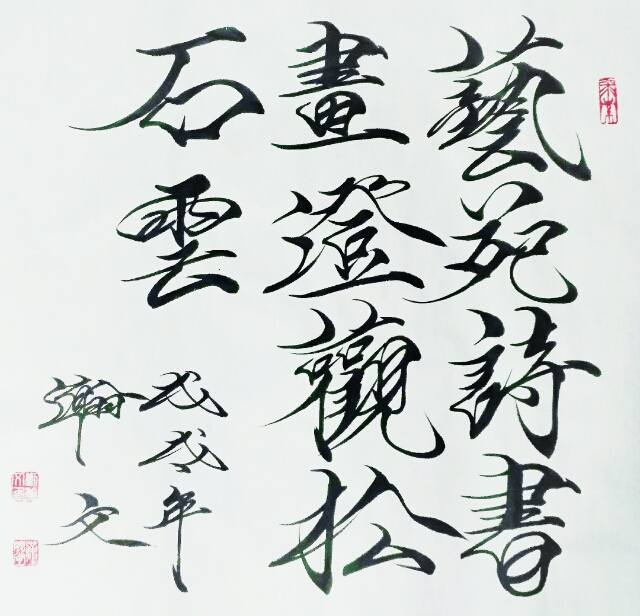 藝苑詩書
畫澄觀松
石雲
戊戌年
瀚文